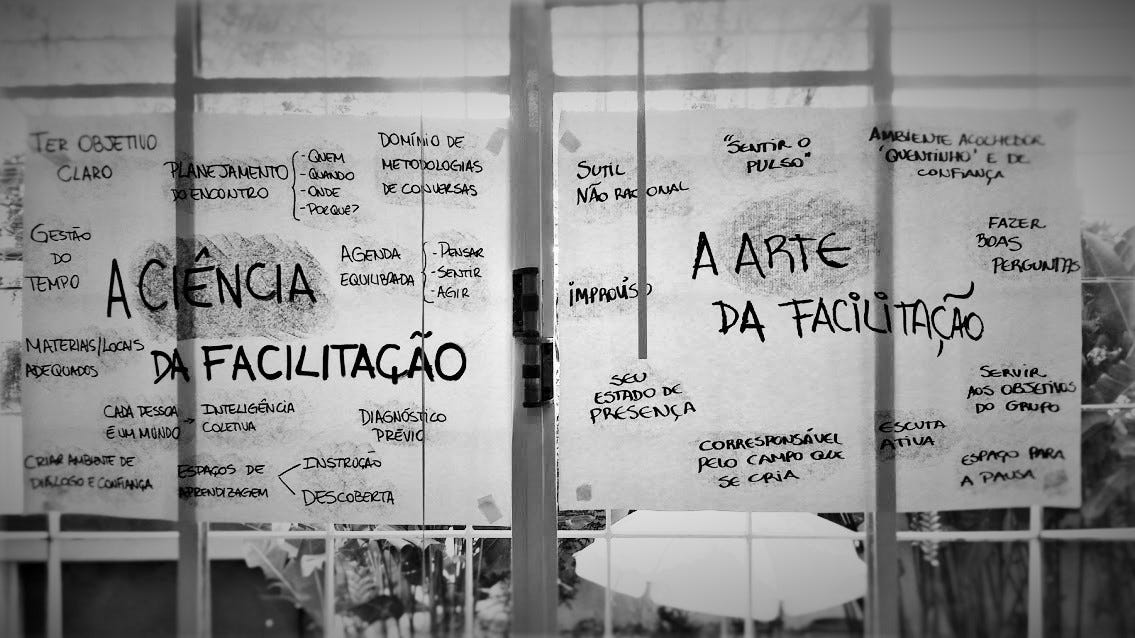 TER OBJETIVO
CLARO
PLANEJAMENTO
DO ENCONTRO
- QUEM
- QUANDO
- ONDE
- POR QUE?
DOMÍNIO DE
METODOLOGIAS
DE CONVERSAS
GESTÃO
DO
TEMPO
A CIÊNCIA
DA FACILITAÇÃO
AGENDA
EQUILIBRADA
- PENSAR
- SENTIR
- AGIR
MATERIAIS/LOCAIS
ADEQUADOS
CADA PESSOA
É UM MUNDO
→ INTELIGÊNCIA
COLETIVA
DIAGNÓSTICO
PRÉVIO
CRIAR AMBIENTE DE
DIÁLOGO E CONFIANÇA
ESPAÇOS DE
APRENDIZAGEM
INSTRUÇÃO
DESCOBERTA
SUTIL
NÃO RACIONAL
"SENTIR O
PULSO"
AMBIENTE ACOLHEDOR
'QUENTINHO' E DE
CONFIANÇA
A ARTE
DA FACILITAÇÃO
FAZER
BOAS
PERGUNTAS
IMPROVISO
SEU
ESTADO DE
PRESENÇA
SERVIR
AOS OBJETIVOS
DO GRUPO
CORRESPONSÁVEL
PELO CAMPO QUE
SE CRIA
ESCUTA
ATIVA
ESPAÇO PARA
A PAUSA